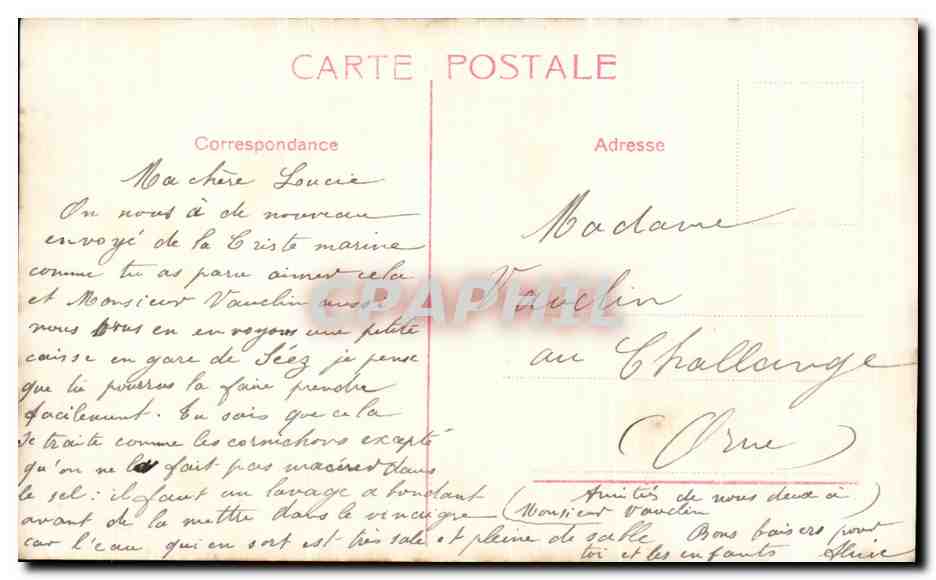 CARTE POSTALE
Correspondance
Ma chère Loucie
On nous à de nouveau
envoyé de la Criste marine
comme tu as paru aimer cela
et Monsieur Vauclin aussi
nous vous en envoyons une petite
caisse en gare de Séez je pense
que tu pourras la faire prendre
facilement. Tu sais que cela
se traite comme les cornichons excepté
qu'on ne le fait pas macérer dans
le sel : il faut un lavage abondant
avant de la mettre dans le vinaigre
car l'eau qui en sort est très sale et pleine de sable
Adresse
Madame
Vauclin
au Challange
(Orne)
(Amitiés de nous deux à
Monsieur Vauclin)
Bons baisers pour
toi et les enfants
CPAPHIL